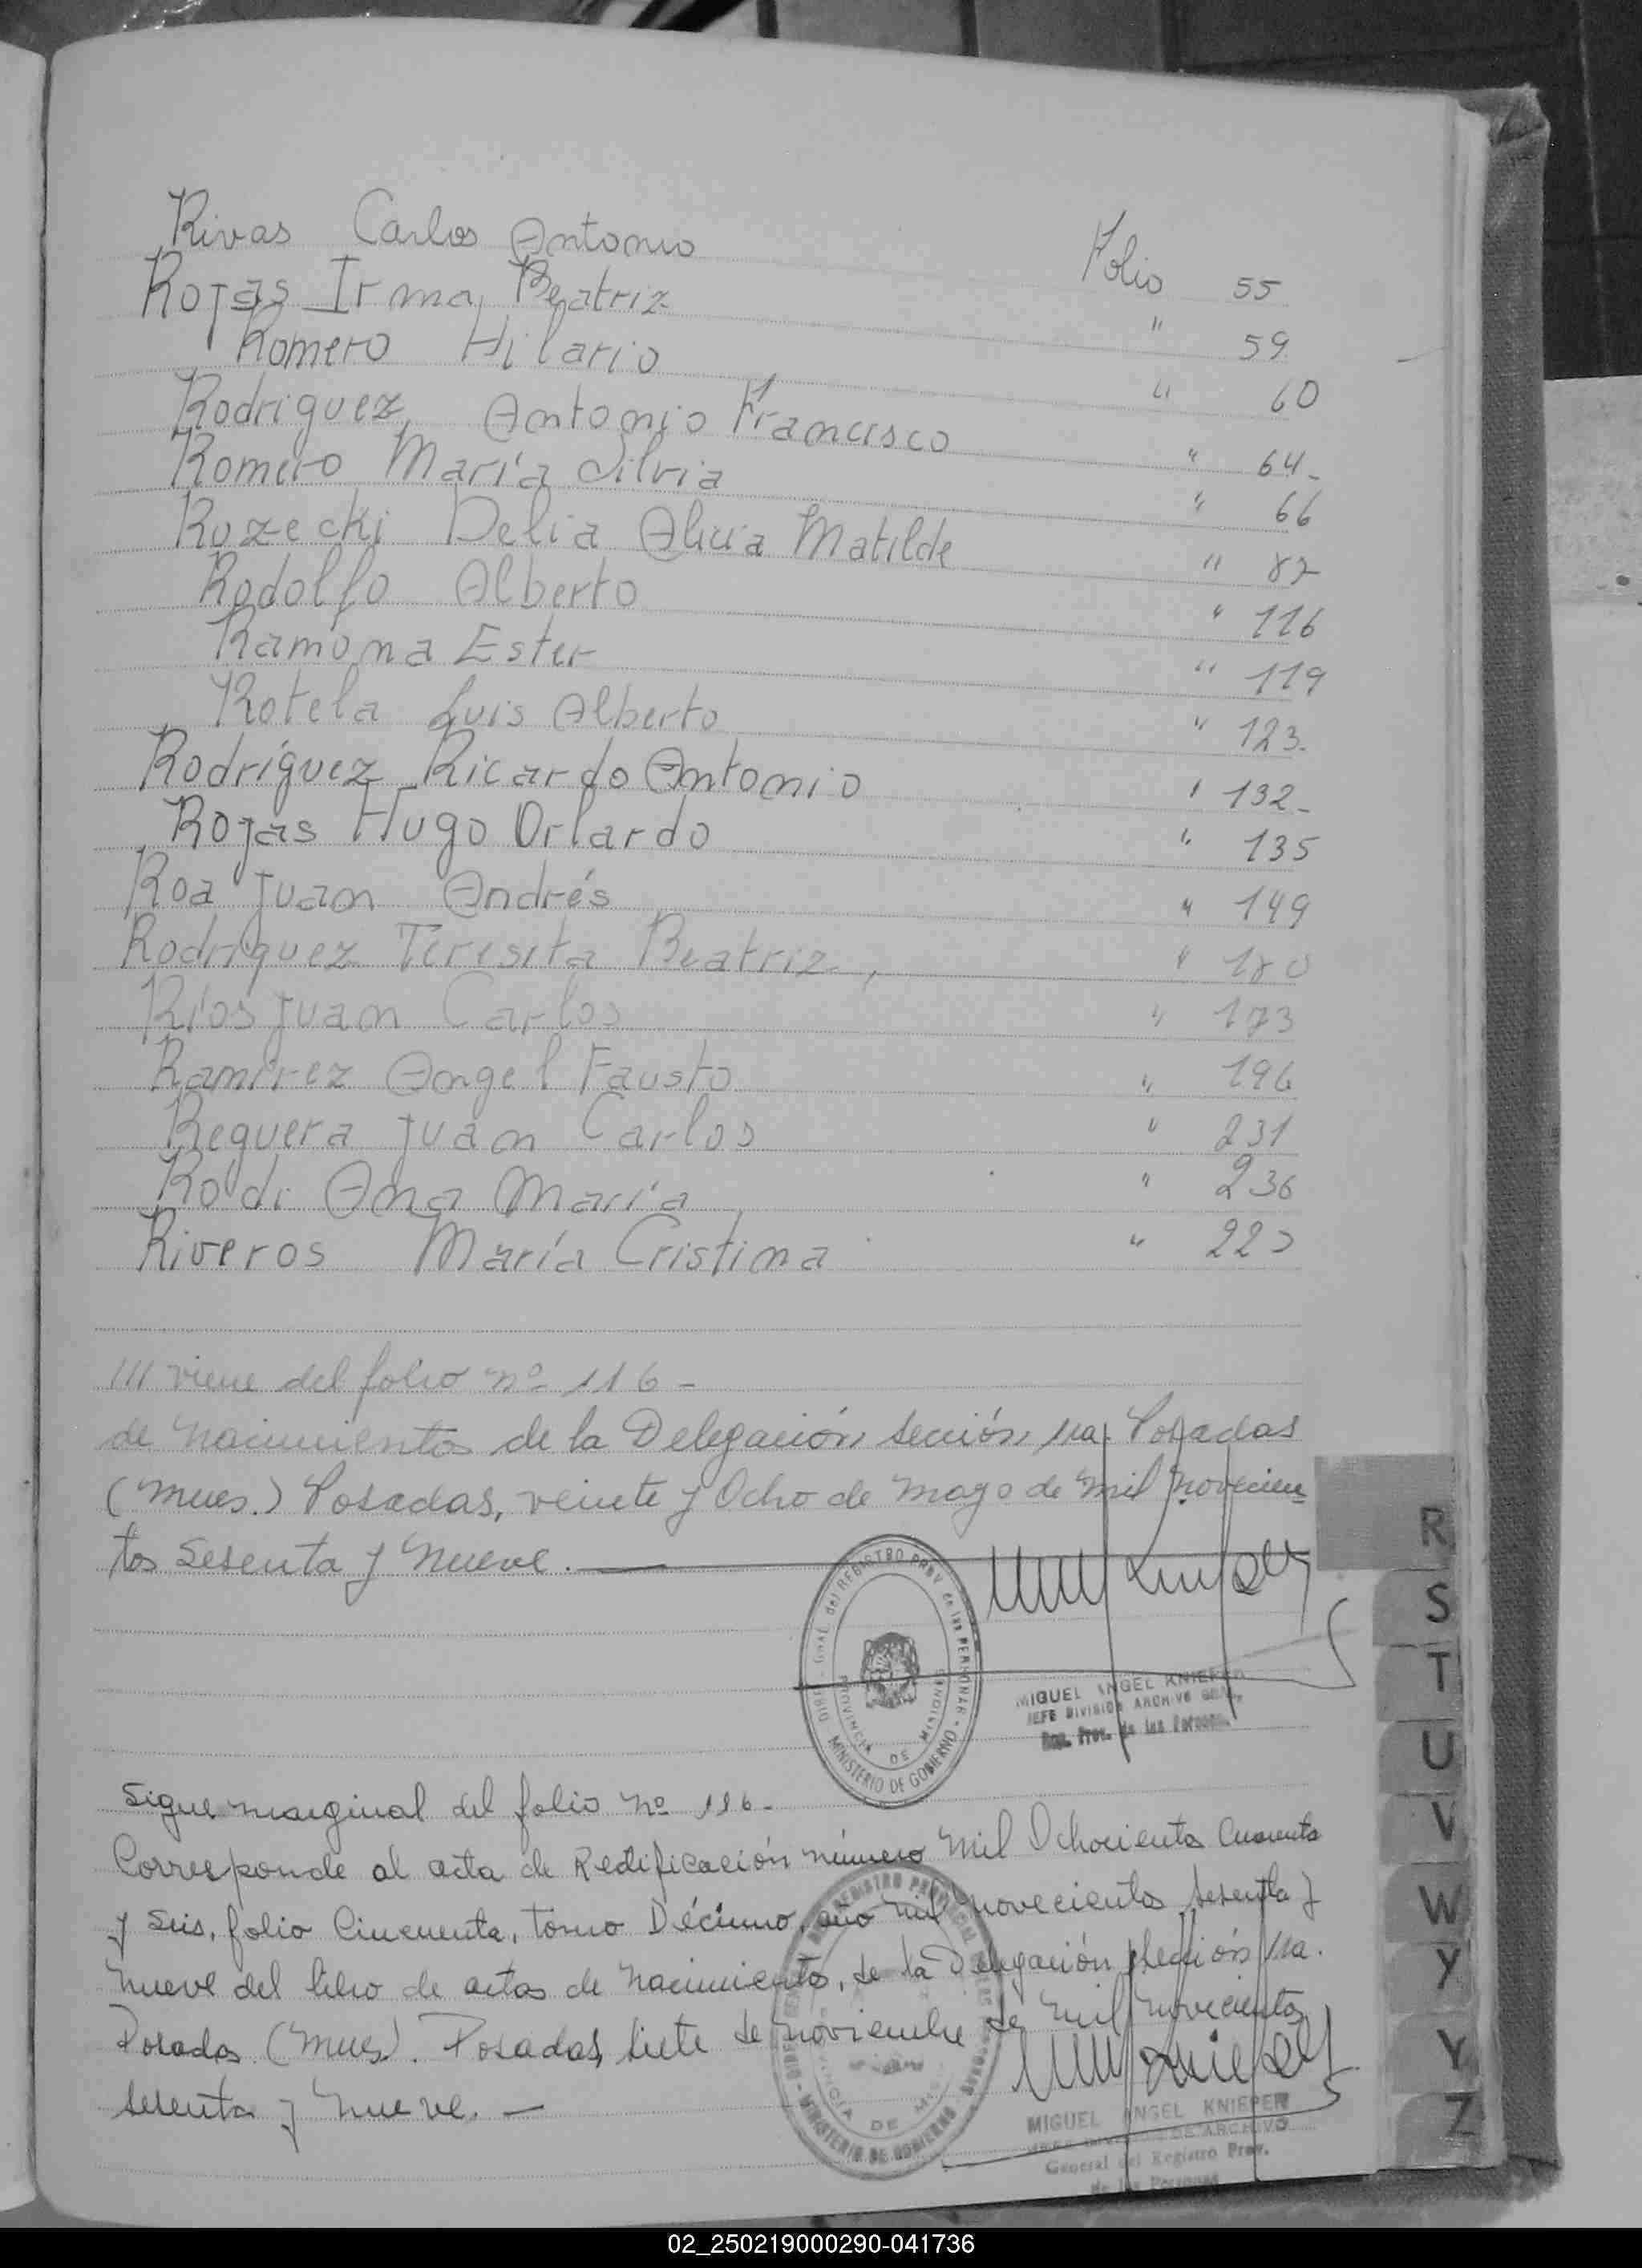 Rivas Carlos Antonio Folio 55
Rojas Irma Beatriz " 59
Romero Hilario " 60
Rodriguez Antonio Francisco " 64-
Romero María Silvia " 66
Rozecki Delia Alicia Matilde " 87
Rodolfo Alberto " 116
Ramona Ester " 119
Rotela Luis Alberto " 123-
Rodríguez Ricardo Antonio " 132-
Rojas Hugo Orlardo " 135
Roa Juan Andrés " 149
Rodriguez Teresita Beatriz, " 180
Ríos Juan Carlos " 173
Ramírez Angel Fausto " 196
Reguera Juan Carlos " 231
Rodi Ana María " 236
Riveros María Cristina "
/// viene del folio nº 116-
de Nacimientos de la Delegación Sección 1ra. Posadas
(Mnes.) Posadas, veinte y Ocho de Mayo de Mil Novecien
tos Sesenta y Nueve.
GRAL. del REGISTRO PROV. de las PERSONAS - MINISTERIO DE GOBIERNO
PROVINCIA DE MISIONES
MIGUEL ANGEL KNIEPER
JEFE DIVISION ARCHIVO GRAL.
Reg. Prov. de las Personas
Sigue marginal del folio nº 116-
Corresponde al acta de Rectificación número Mil Ochocientos Cuarenta
y Seis, folio Cincuenta, tomo Décimo, año mil novecientos sesenta y
nueve del libro de actas de Nacimientos, de la Delegación Sección 1ra.
Posadas (Mnes). Posadas, siete de noviembre de mil novecientos
sesenta y nueve. -
REGISTRO PROVINCIAL PERSONAS - MINISTERIO DE GOBIERNO
PROVINCIA DE
MIGUEL ANGEL KNIEPER
JEFE DIVISION DE ARCHIVO
General del Registro Prov.
de las Personas
R
S
T
U
V
W
Y
Y
Z
02_250219000290-041736